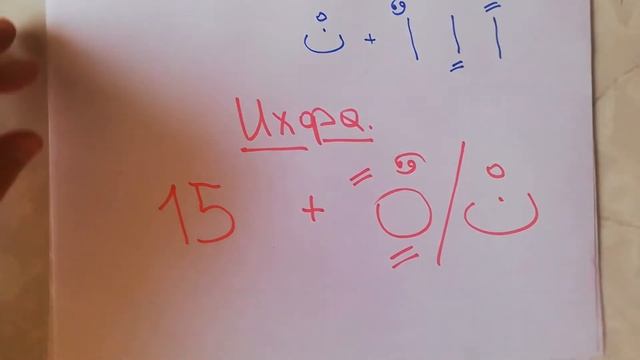 نْ + اٌ اٍ اً
Ихфа.
15 + ًٌٍ○ / نْ